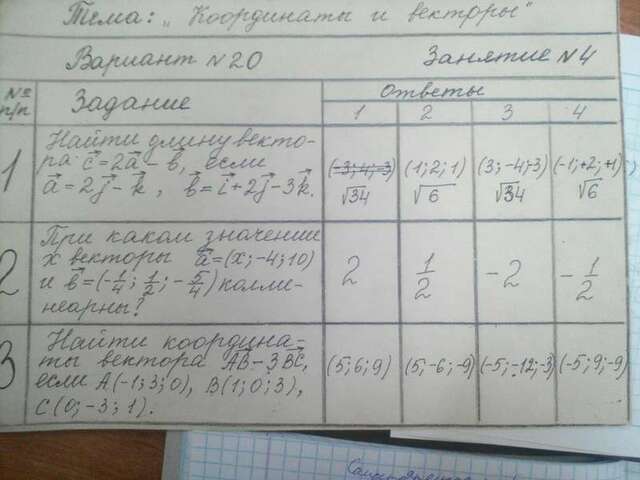 Тема: „Координаты и векторы"
Вариант №20 Занятие №4
№ п/п Задание Ответы
1 2 3 4
1 Найти длину векто-
ра c⃗=2a⃗-b⃗, если
a⃗=2j⃗-k⃗, b⃗=i⃗+2j⃗-3k⃗.
(-3;4;-3) √34
(1;2;1) √6
(3;-4;-3) √34
(-1;+2;+1) √6
2 При каком значении
x векторы a⃗=(x;-4;10)
и b⃗=(-1/4; 1/2; -5/4) колли-
неарны?
2 1/2 -2 -1/2
3 Найти координа-
ты вектора AB-3BC,
если A(-1;3;0), B(1;0;3),
C(0;-3;1).
(5;6;9) (5;-6;-9) (-5;-12;-3) (-5;9;-9)